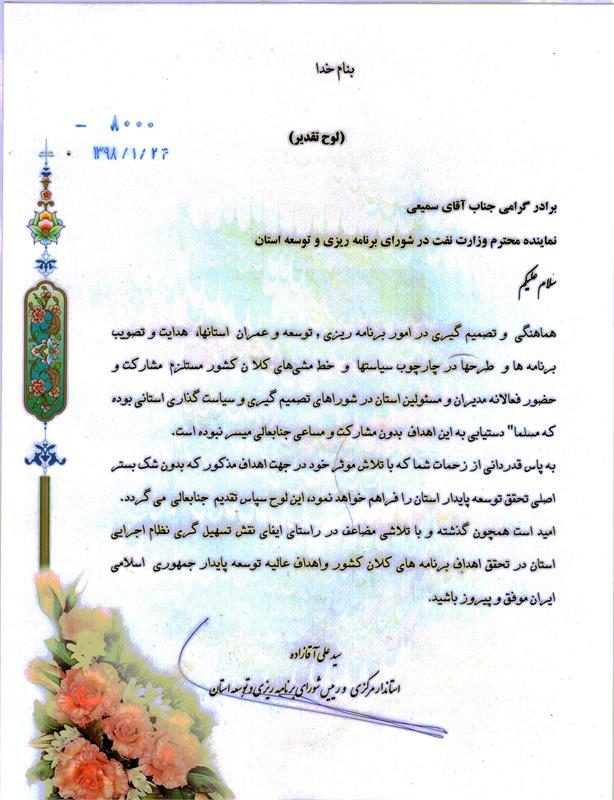 بنام خدا
۸۰۰۰ -
۱۳۹۸/۱/۲۶
(لوح تقدیر)
برادر گرامی جناب آقای سمیعی
نماینده محترم وزارت نفت در شورای برنامه ریزی و توسعه استان
سلام علیکم
هماهنگی و تصمیم گیری در امور برنامه ریزی , توسعه و عمران استانها، هدایت و تصویب
برنامه ها و طرحها در چارچوب سیاستها و خط مشی‌های کلان کشور مستلزم مشارکت و
حضور فعالانه مدیران و مسئولین استان در شوراهای تصمیم گیری و سیاست گذاری استانی بوده
که مسلما" دستیابی به این اهداف بدون مشارکت و مساعی جنابعالی میسر نبوده است.
به پاس قدردانی از زحمات شما که با تلاش موثر خود در جهت اهداف مذکور که بدون شک بستر
اصلی تحقق توسعه پایدار استان را فراهم خواهد نمود، این لوح سپاس تقدیم جنابعالی می گردد.
امید است همچون گذشته و با تلاشی مضاعف در راستای ایفای نقش تسهیل گری نظام اجرایی
استان در تحقق اهداف برنامه های کلان کشور واهداف عالیه توسعه پایدار جمهوری اسلامی
ایران موفق و پیروز باشید.
سید علی آقازاده
استاندار مرکزی و رییس شورای برنامه ریزی و توسعه استان